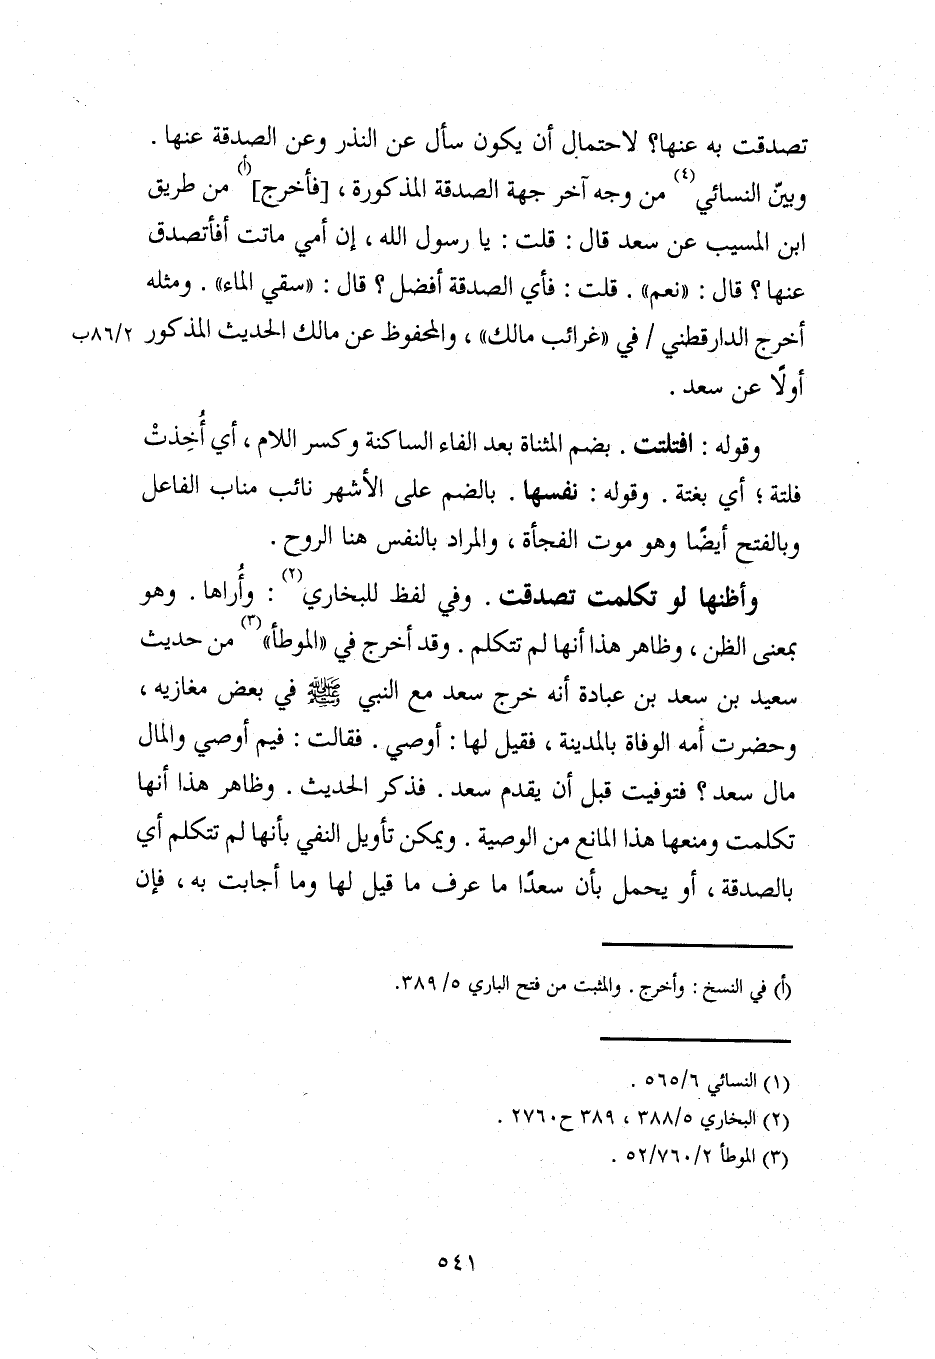 تصدقت به عنها؟ لاحتمال أن يكون سأل عن النذر وعن الصدقة عنها .
وبينّ النسائي(٤) من وجه آخر جهة الصدقة المذكورة ، [فأخرج](أ) من طريق
ابن المسيب عن سعد قال : قلت : يا رسول الله ، إن أمي ماتت أفأتصدق
عنها ؟ قال : «نعم» . قلت : فأي الصدقة أفضل ؟ قال : «سقي الماء» . ومثله
أخرج الدارقطني / في «غرائب مالك» ، والمحفوظ عن مالك الحديث المذكور ٨٦/٢ب
أولًا عن سعد .
وقوله : افتلتت . بضم المثناة بعد الفاء الساكنة وكسر اللام ، أي أُخِذتْ
فلتة ؛ أي بغتة . وقوله : نفسها . بالضم على الأشهر نائب مناب الفاعل
وبالفتح أيضًا وهو موت الفجأة ، والمراد بالنفس هنا الروح .
وأظنها لو تكلمت تصدقت . وفي لفظ للبخاري(٢) : وأُراها . وهو
بمعنى الظن ، وظاهر هذا أنها لم تتكلم . وقد أخرج في «الموطأ»(٣) من حديث
سعيد بن سعد بن عبادة أنه خرج سعد مع النبي ﷺ في بعض مغازيه ،
وحضرت أمه الوفاة بالمدينة ، فقيل لها : أوصي . فقالت : فيم أوصي والمال
مال سعد ؟ فتوفيت قبل أن يقدم سعد . فذكر الحديث . وظاهر هذا أنها
تكلمت ومنعها هذا المانع من الوصية . ويمكن تأويل النفي بأنها لم تتكلم أي
بالصدقة ، أو يحمل بأن سعدًا ما عرف ما قيل لها وما أجابت به ، فإن
(أ) في النسخ : وأخرج . والمثبت من فتح الباري ٥/ ٣٨٩.
(١) النسائي ٥٦٥/٦ .
(٢) البخاري ٣٨٨/٥ ، ٣٨٩ ح٢٧٦٠ .
(٣) الموطأ ٥٢/٧٦٠/٢ .
٥٤١